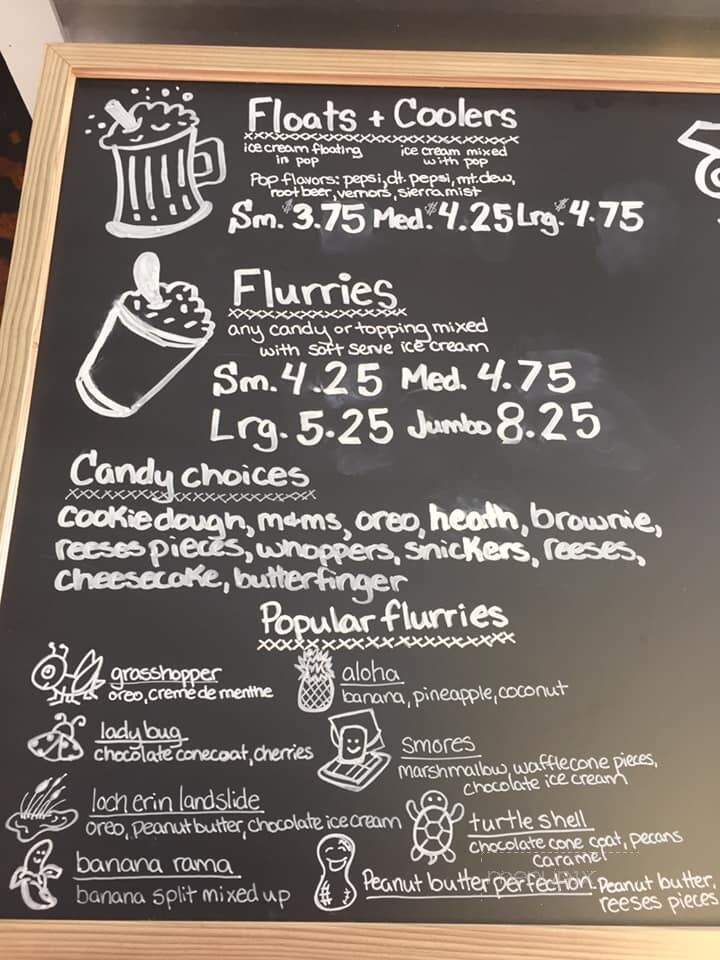 Floats + Coolers
ice cream floating in pop
ice cream mixed with pop
Pop flavors: pepsi, dt. pepsi, mt. dew,
root beer, vernors, sierra mist
Sm. $3.75 Med. $4.25 Lrg. $4.75
Flurries
any candy or topping mixed
with soft serve ice cream
Sm. 4.25 Med. 4.75
Lrg. 5.25 Jumbo 8.25
Candy choices
cookie dough, m+ms, oreo, heath, brownie,
reeses pieces, whoppers, snickers, reeses,
cheesecake, butterfinger
Popular flurries
grasshopper
oreo, creme de menthe
aloha
banana, pineapple, coconut
lady bug
chocolate conecoat, cherries
smores
marshmallow, waffle cone pieces,
chocolate ice cream
loch erin landslide
oreo, peanut butter, chocolate ice cream
turtle shell
chocolate cone coat, pecans
caramel
banana rama
banana split mixed up
Peanut butter perfection. Peanut butter,
reeses pieces